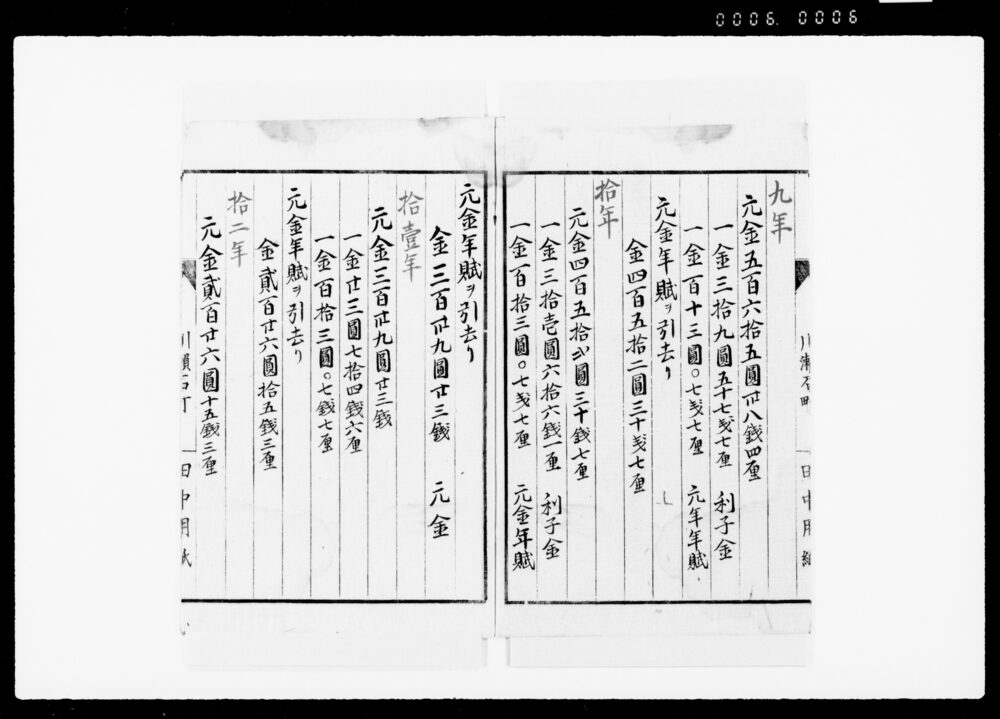 0006. 0006
九年
元金五百六拾五圓卅八錢四厘
一金三拾九圓五十七戔七厘 利子金
一金百十三圓〇七戔七厘 元年年賦
元金年賦ヲ引去り
金四百五拾二圓三十戔七厘
拾年
元金四百五拾弐圓三十錢七厘
一金三拾壱圓六拾六錢一厘 利子金
一金百拾三圓〇七戔七厘 元金年賦
元金年賦ヲ引去り
金三百卅九圓廿三錢 元金
拾壹年
元金三百卅九圓廿三錢
一金廿三圓七拾四錢六厘
一金百拾三圓〇七錢七厘
元金年賦ヲ引去り
金貳百廿六圓拾五錢三厘
拾二年
元金貳百廿六圓十五錢三厘
川瀬石町 田中用紙